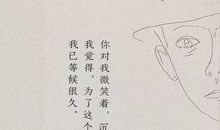 你对我微笑着，沉
我觉得，为了这个
我已等候很久。